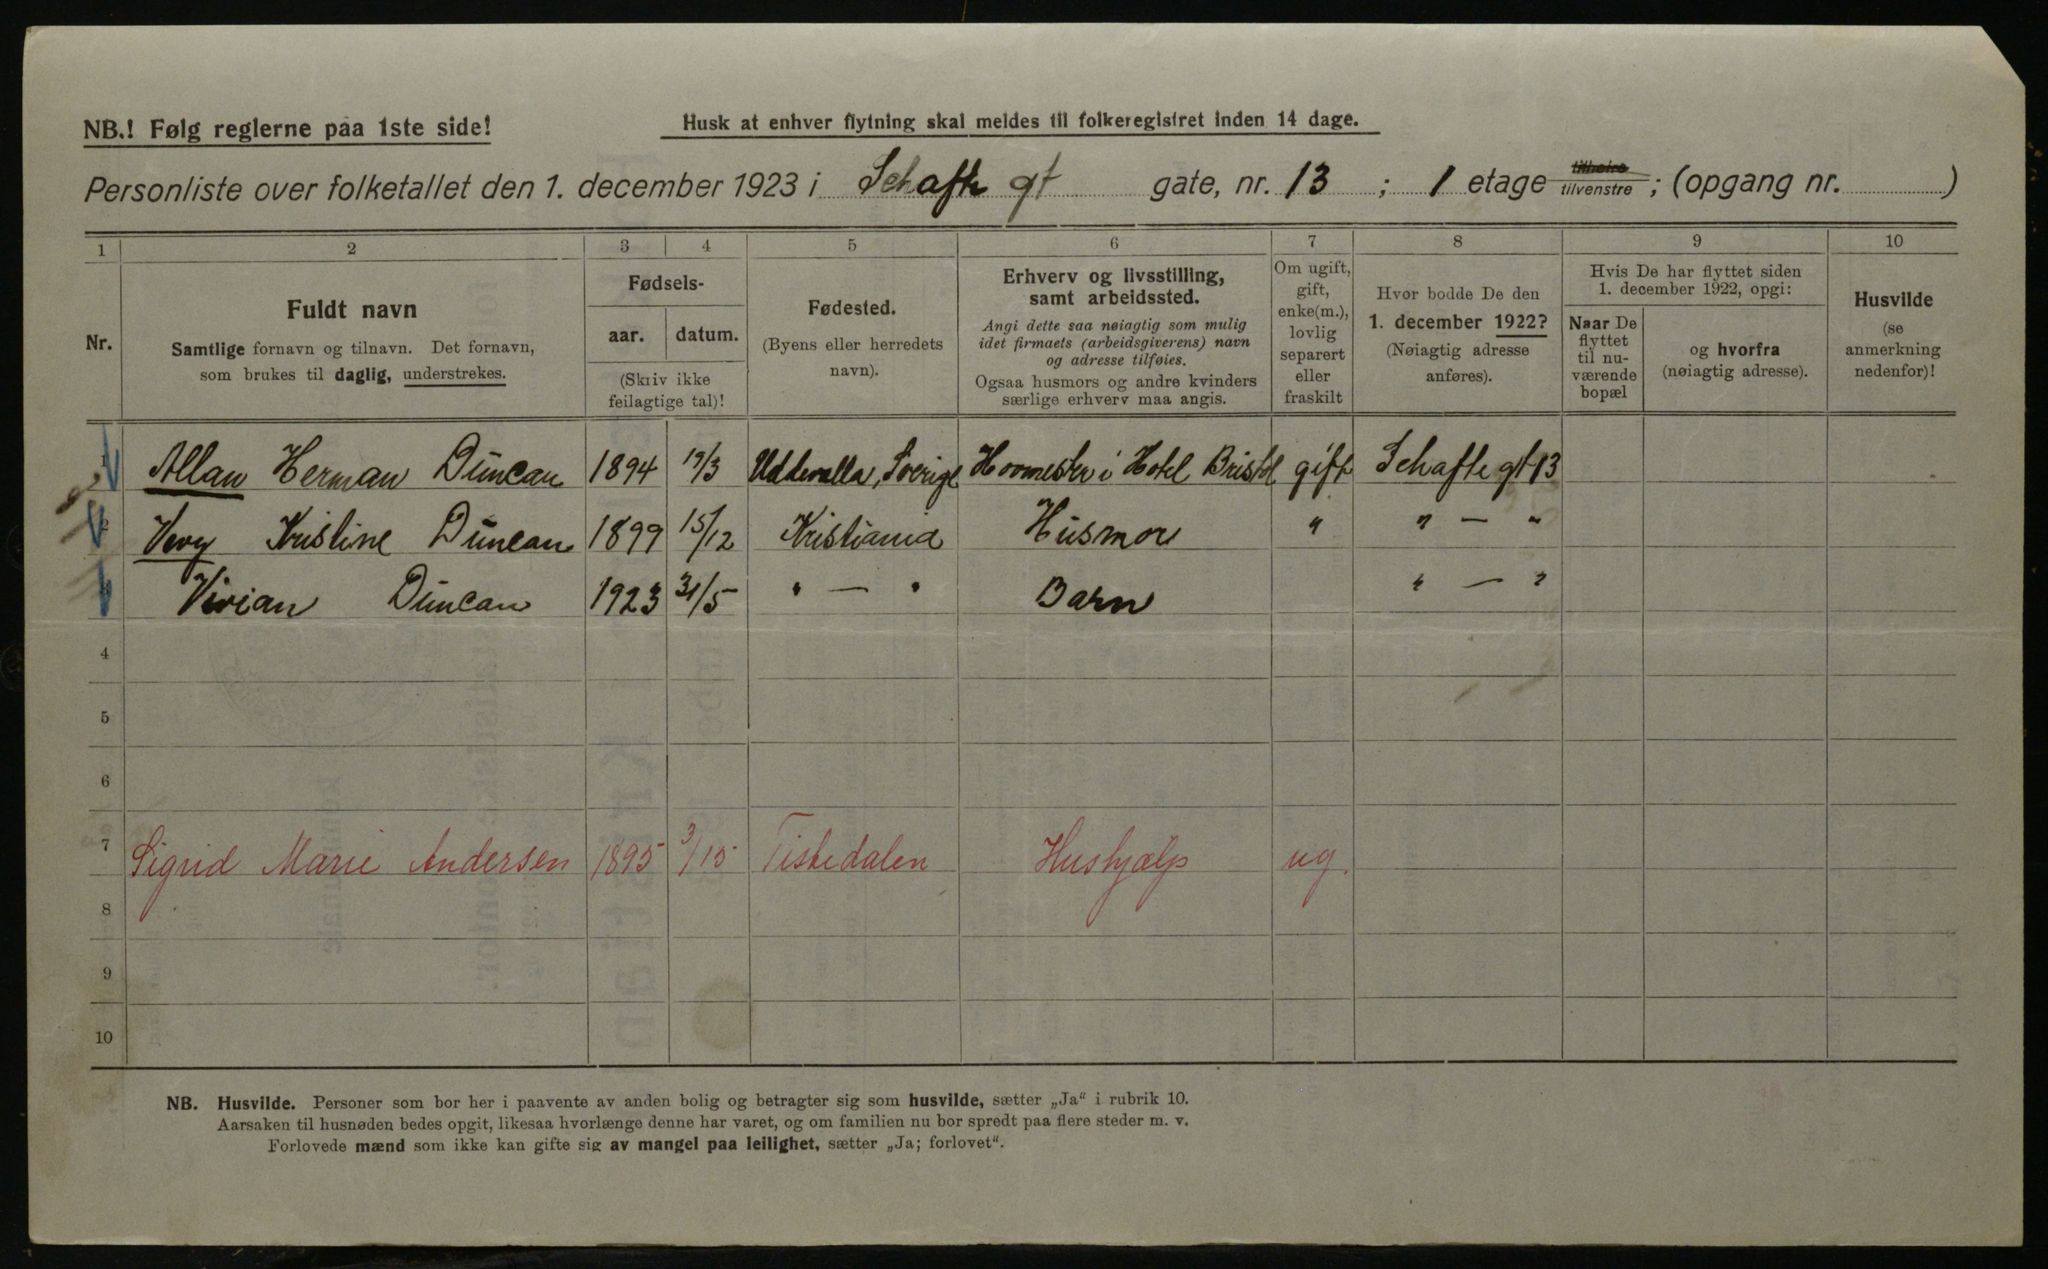 NB.! Følg reglerne paa 1ste side!
Husk at enhver flytning skal meldes til folkeregistret inden 14 dage.
Personliste over folketallet den 1. december 1923 i Schafts gt gate, nr. 13 ; 1 etage tilhøire tilvenstre ; (opgang nr. )
1 2 3 4 5 6 7 8 9 10
Nr.
Fuldt navn
Samtlige fornavn og tilnavn. Det fornavn,
som brukes til daglig, understrekes.
Fødsels-
aar. datum.
(Skriv ikke
feilagtige tal)!
Fødested.
(Byens eller herredets
navn).
Erhverv og livsstilling,
samt arbeidssted.
Angi dette saa nøiagtig som mulig
idet firmaets (arbeidsgiverens) navn
og adresse tilføies.
Ogsaa husmors og andre kvinders
særlige erhverv maa angis.
Om ugift,
gift,
enke(m.),
lovlig
separert
eller
fraskilt
Hvor bodde De den
1. december 1922?
(Nøiagtig adresse
anføres).
Hvis De har flyttet siden
1. december 1922, opgi:
Naar De
flyttet
til nu-
værende
bopæl
og hvorfra
(nøiagtig adresse).
Husvilde
(se
anmerkning
nedenfor)!
1 Allan Herman Duncan 1894 19/3 Uddevalla, Sverige Hovmester i Hotel Bristol gift Schafts gt 13
2 Vevy Kristine Duncan 1899 15/12 Kristiania Husmor " " — "
Vivian Duncan 1923 31/5 " — " Barn " — "
4
5
6
7 Sigrid Marie Andersen 1895 3/15 Tistedalen Hushjælp ug.
8
9
10
NB. Husvilde. Personer som bor her i paavente av anden bolig og betragter sig som husvilde, sætter „Ja“ i rubrik 10.
Aarsaken til husnøden bedes opgit, likesaa hvorlænge denne har varet, og om familien nu bor spredt paa flere steder m. v.
Forlovede mænd som ikke kan gifte sig av mangel paa leilighet, sætter „Ja; forlovet“.